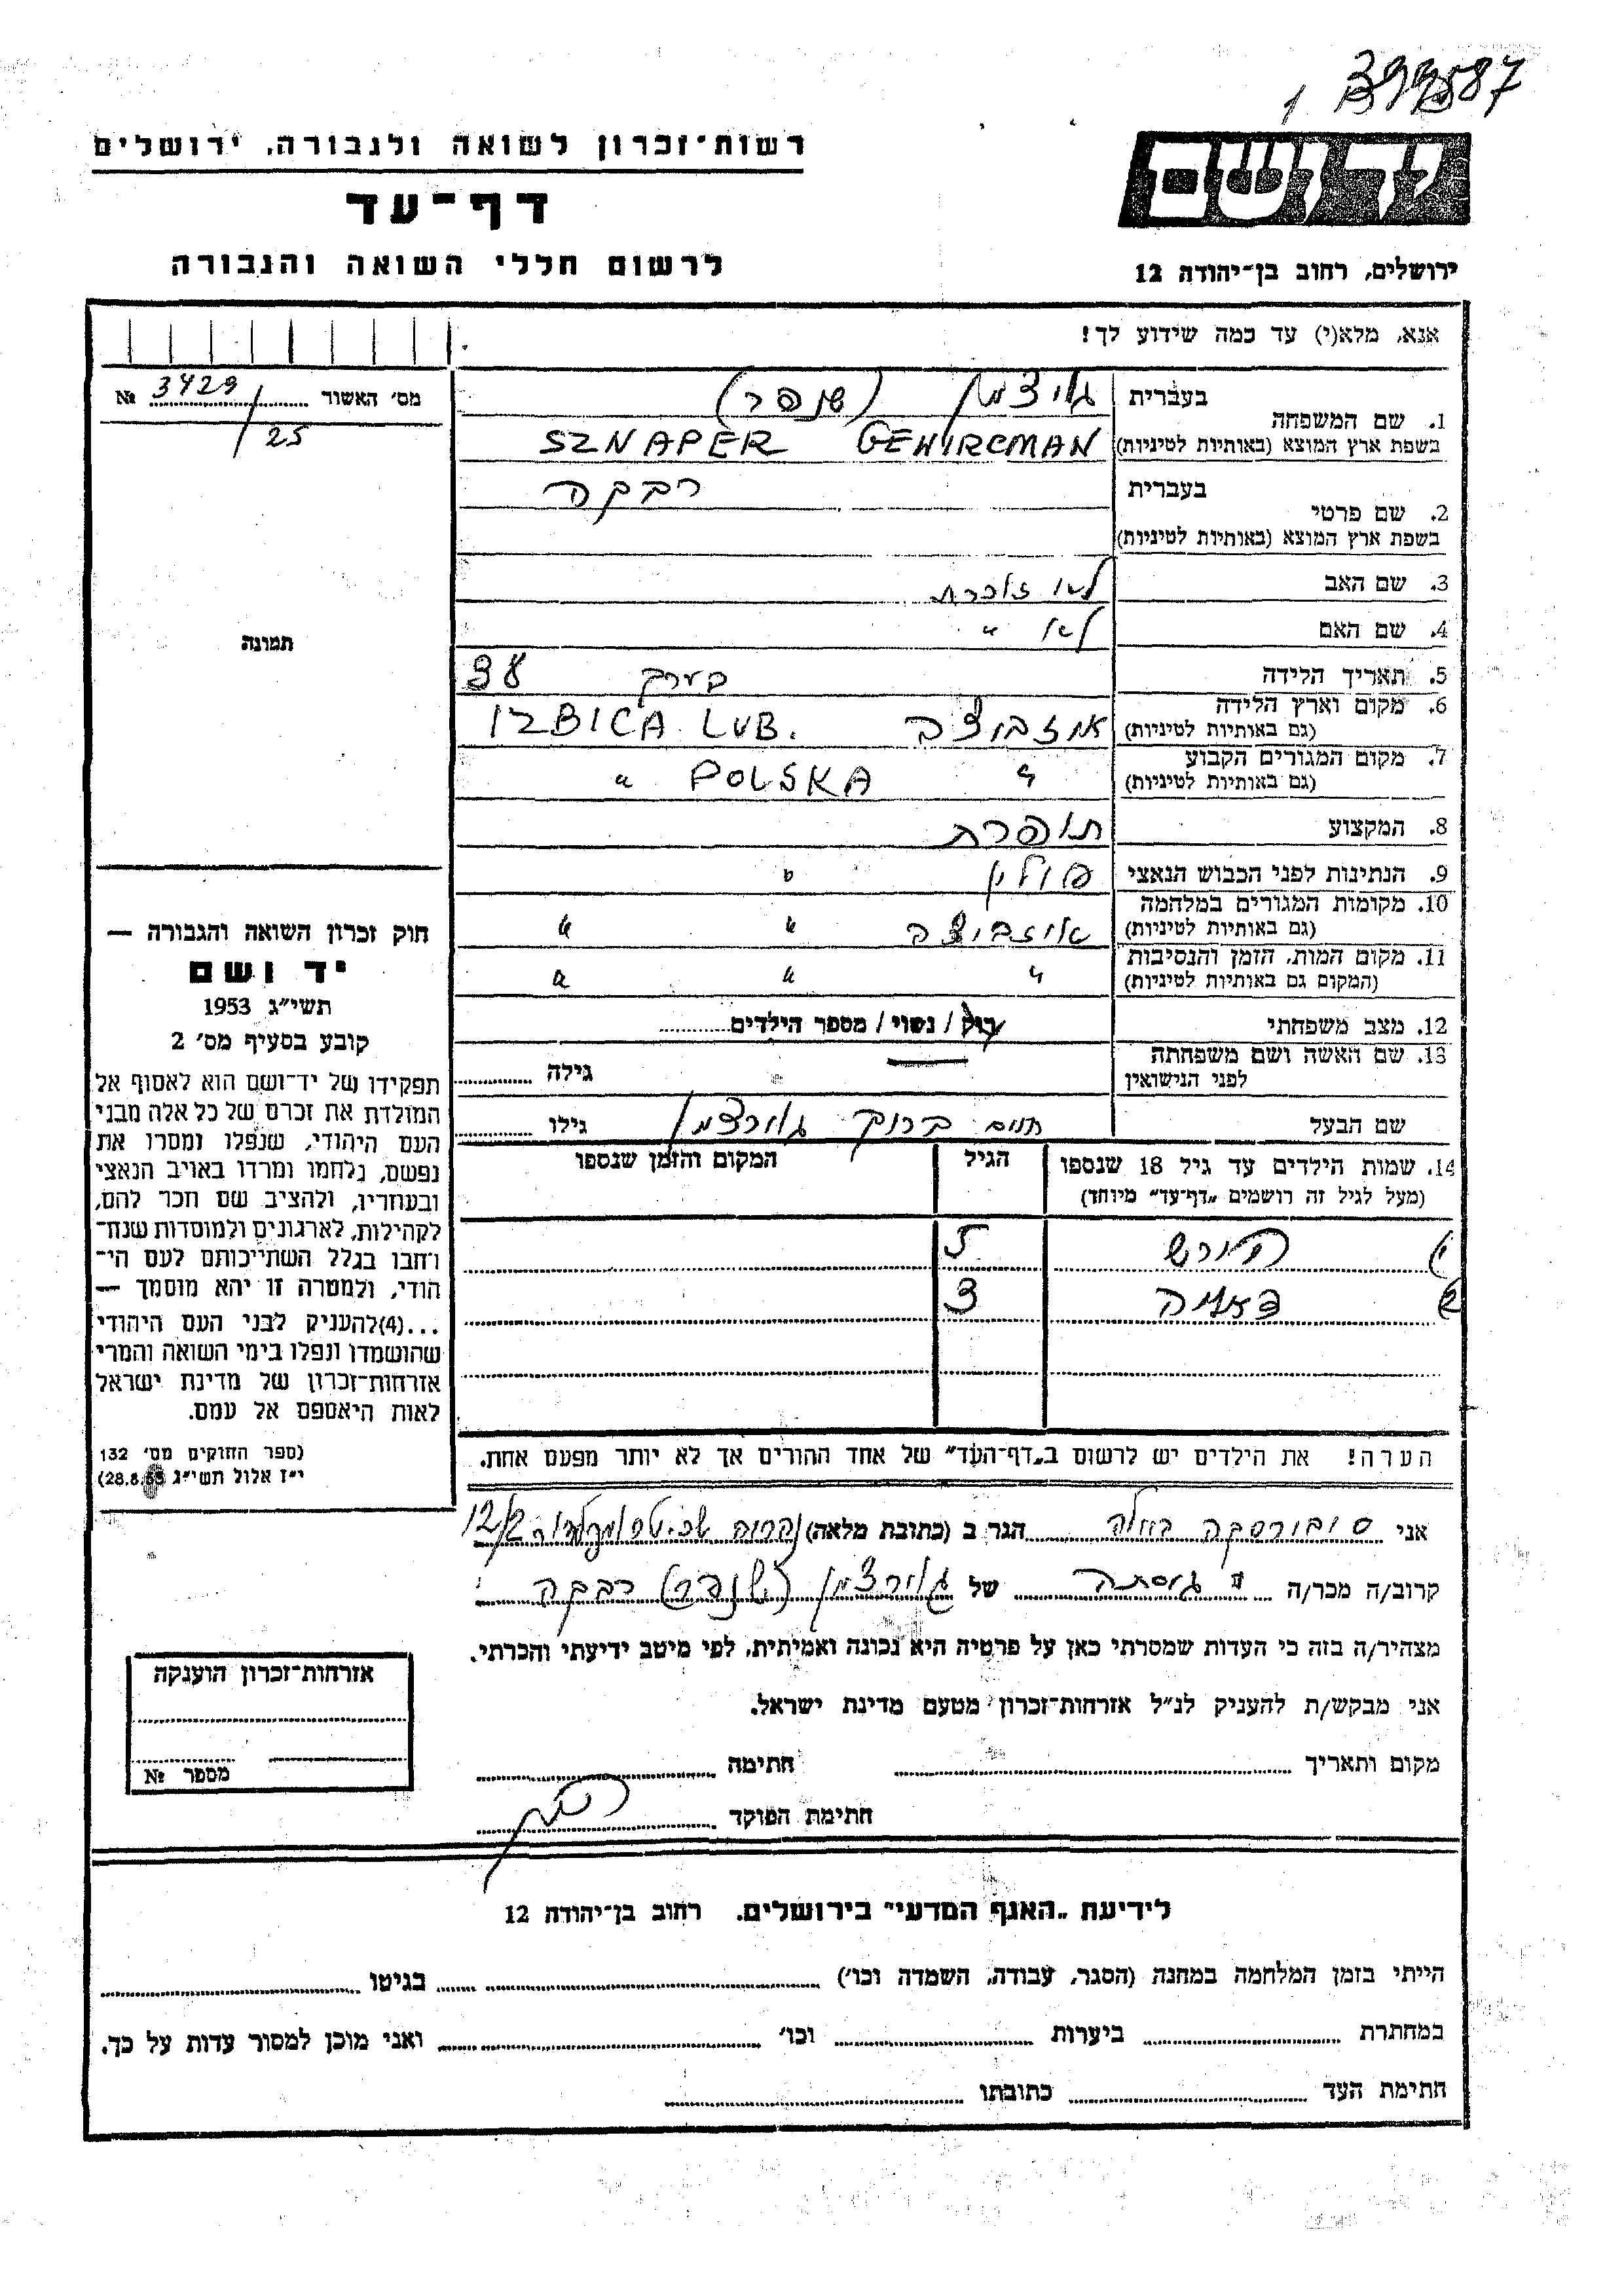 1 399587
יד ושם
רשות־זכרון לשואה ולגבורה, ירושלים
דף־עד
לרשום חללי השואה והגבורה
ירושלים, רחוב בן־יהודה 12
אנא, מלא(י) עד כמה שידוע לך!
מס׳ האשור 3429/25 №
תמונה
חוק זכרון השואה והגבורה —
יד ושם
תשי״ג 1953
קובע בסעיף מס׳ 2
תפקידו של יד־ושם הוא לאסוף אל
המולדת את זכרם של כל אלה מבני
העם היהודי, שנפלו ומסרו את
נפשם, נלחמו ומרדו באויב הנאצי
ובעוזריו, ולהציב שם וזכר להם,
לקהילות, לארגונים ולמוסדות שנח־
רבו בגלל השתייכותם לעם הי־
הודי, ולמטרה זו יהא מוסמך —
...(4)להעניק לבני העם היהודי
שהושמדו ונפלו בימי השואה והמרי
אזרחות־זכרון של מדינת ישראל
לאות היאספם אל עמם.
(ספר החוקים מס׳ 132
י״ז אלול תשי״ג 28.8.53)
1. שם המשפחה
בעברית גוירצמן (שנפר)
בשפת ארץ המוצא (באותיות לטיניות) GEWIRCMAN SZNAPER
2. שם פרטי
בעברית רבקה
בשפת ארץ המוצא (באותיות לטיניות)
3. שם האב לא זוכרת
4. שם האם לא ״
5. תאריך הלידה בערך 38
6. מקום וארץ הלידה (גם באותיות לטיניות) איזביצה IZBICA LUB.
7. מקום המגורים הקבוע (גם באותיות לטיניות) ״ POLSKA ״
8. המקצוע תופרת
9. הנתינות לפני הכבוש הנאצי פולין ״
10. מקומות המגורים במלחמה (גם באותיות לטיניות) איזביצה ״ ״
11. מקום המות, הזמן והנסיבות (המקום גם באותיות לטיניות) ״ ״ ״
12. מצב משפחתי רוק / נשוי / מספר הילדים
13. שם האשה ושם משפחתה לפני הנישואין — גילה
שם הבעל חיים ברוך גוורצמן גילו
14. שמות הילדים עד גיל 18 שנספו הגיל המקום והזמן שנספו
(מעל לגיל זה רושמים „דף־עד״ מיוחד)
1) הירש 5
2) 3
הערה! את הילדים יש לרשום ב„דף־העד״ של אחד ההורים אך לא יותר מפעם אחת.
אני סובורסקה רחלה הגר ב (כתובת מלאה) נהריה 12/2
קרוב/ה מכר/ה גיסתה של גוירצמן (שנפר) רבקה
מצהיר/ה בזה כי העדות שמסרתי כאן על פרטיה היא נכונה ואמיתית, לפי מיטב ידיעתי והכרתי.
אני מבקש/ת להעניק לנ״ל אזרחות־זכרון מטעם מדינת ישראל.
מקום ותאריך חתימה
חתימת הפוקד
אזרחות־זכרון הוענקה
מספר №
לידיעת „האגף המדעי״ בירושלים, רחוב בן־יהודה 12
הייתי בזמן המלחמה במחנה (הסגר, עבודה, השמדה וכו׳) בגיטו
במחתרת ביערות וכו׳ ואני מוכן למסור עדות על כך.
חתימת העד כתובתו